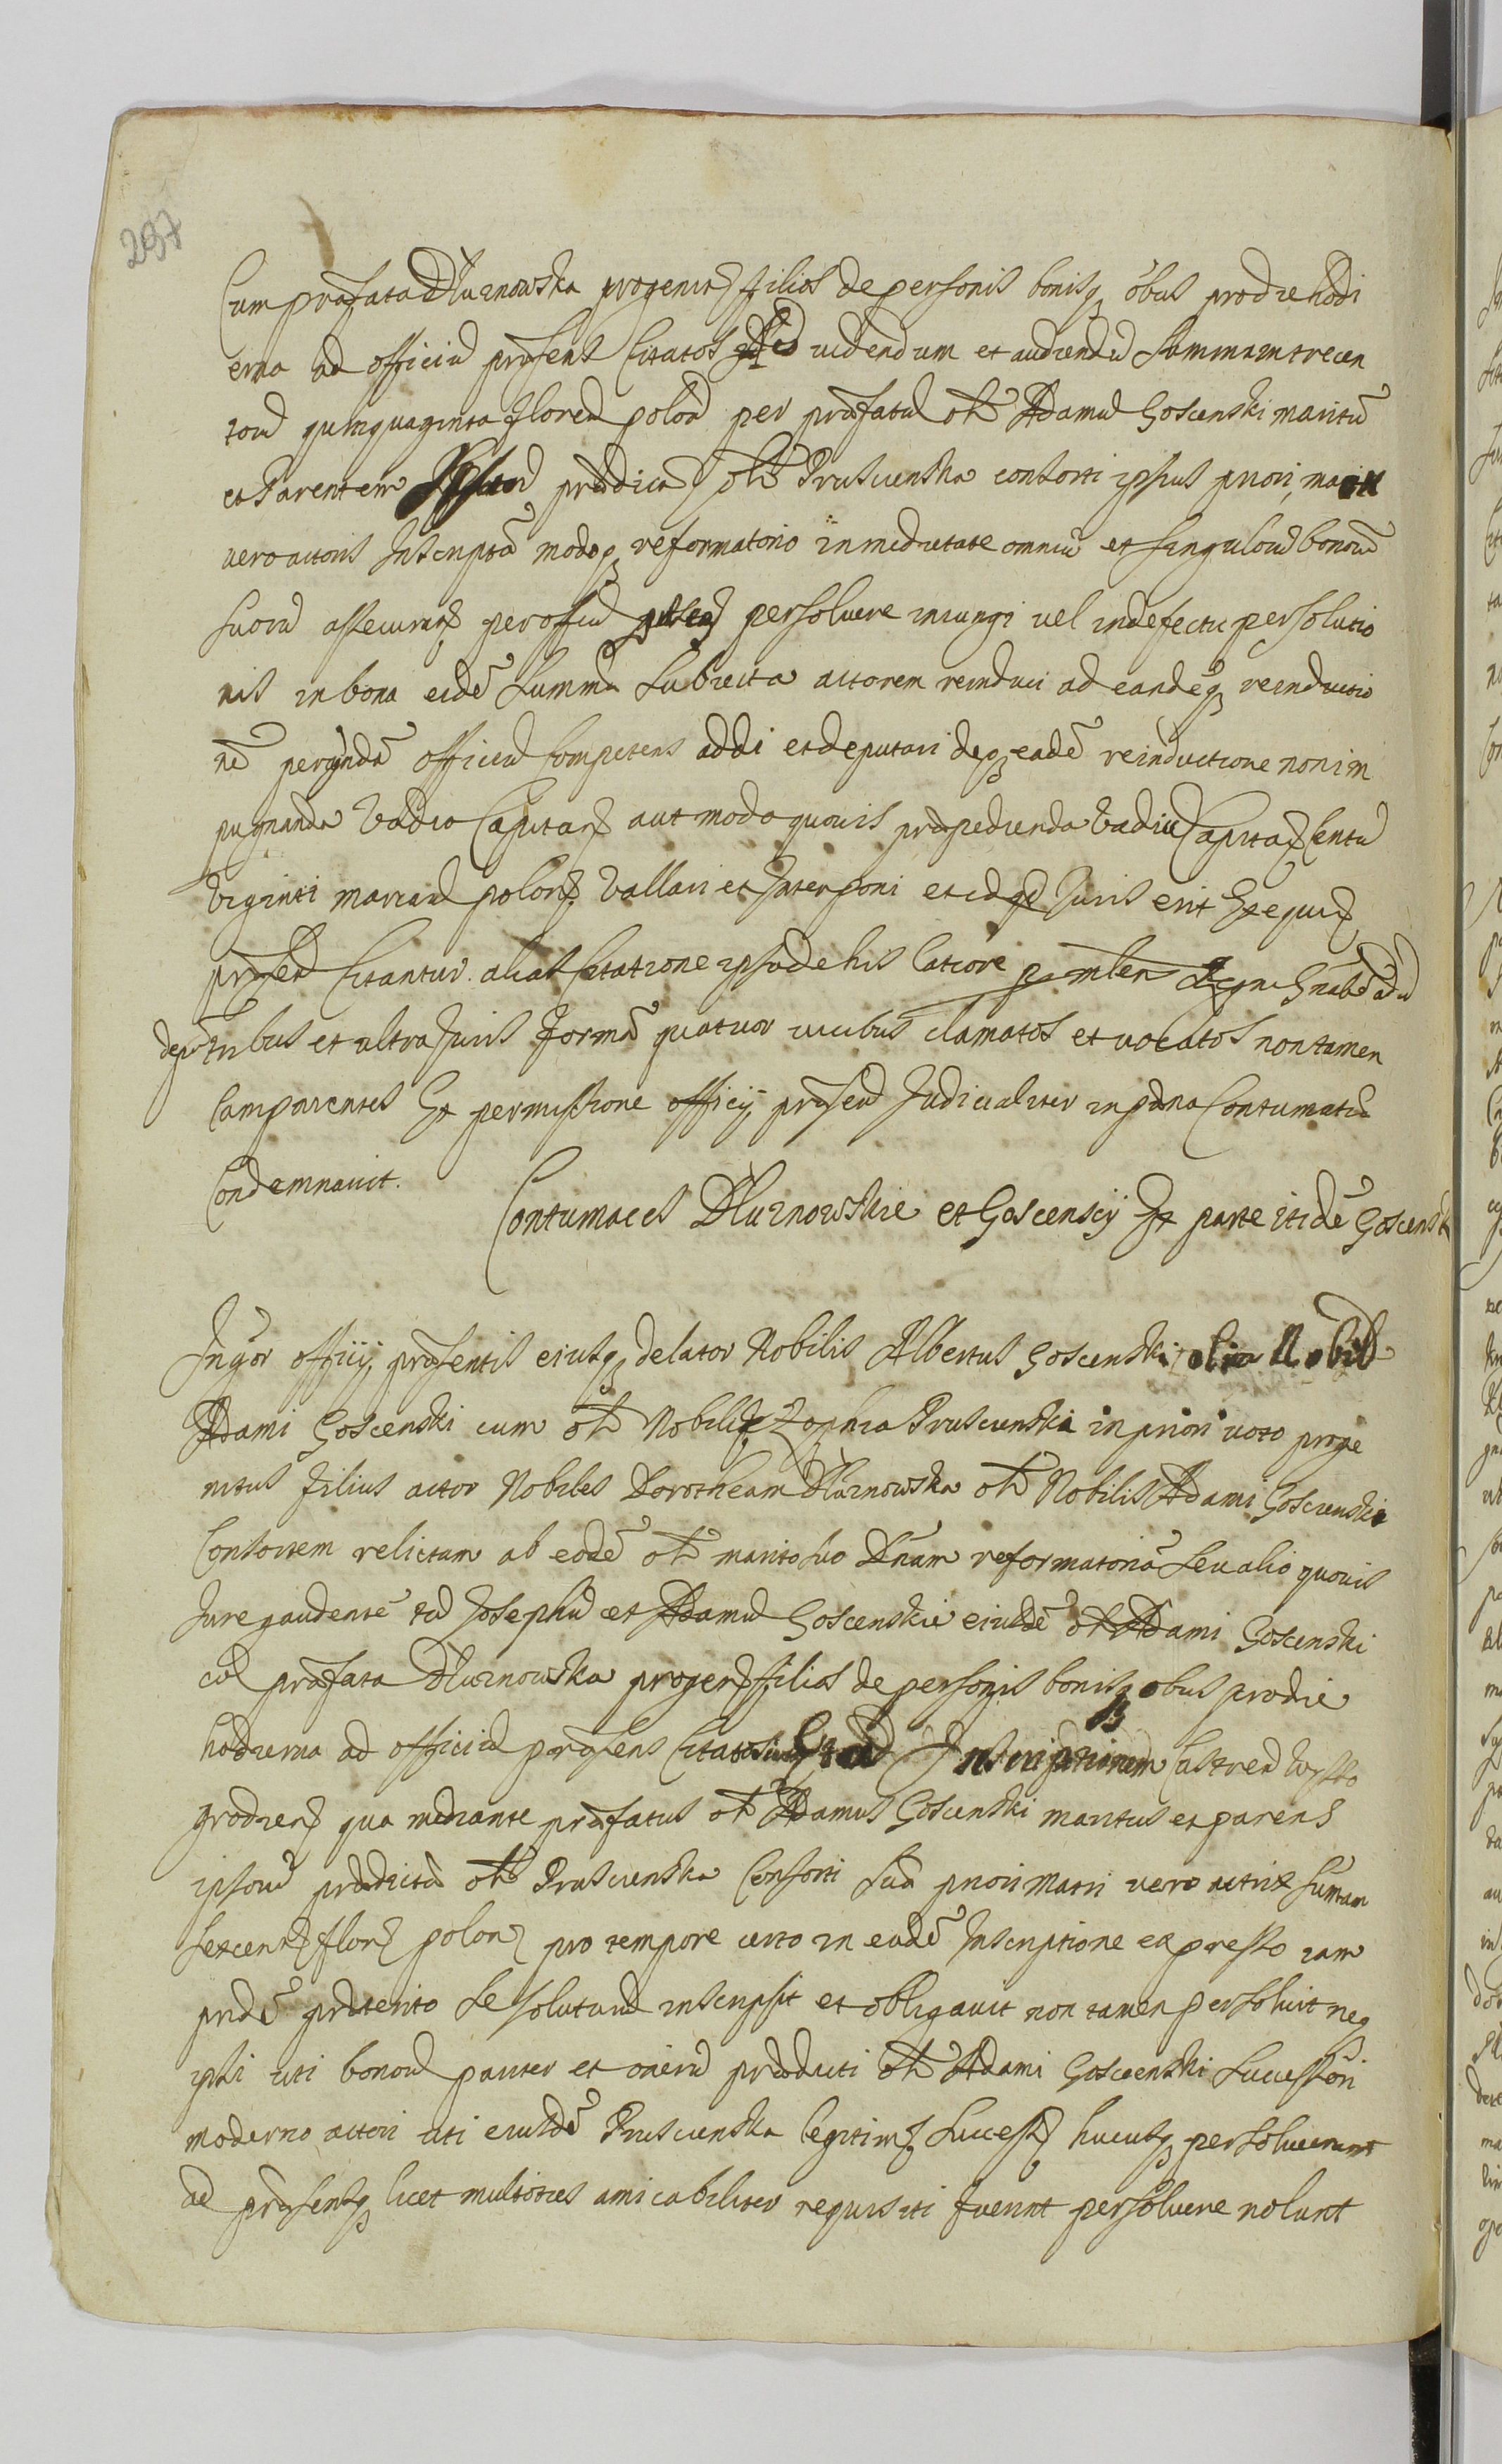 297
Cum præfata Dłużnowska progenit filios de personis bonisq̨ obus pro die hodi
erna ad officiū præsens Citatos ad uidendum et audiendū Summam trecen
torū quinquaginta florenū polon per præfatū olim Adamū Goscenski maritū
et Parentem Ipsorū prædicta olim Pruscienska consorti ipsius priori, matri
vero actoris Inscriptā modoq̨ reformatorio in medietate omniū et singulorū bonorū
suorū assecurat per officiū persoluere iniungi uel in defectu persolutio
nis in bona eidē summæ subiecta actorem reinduci ad eandēq̨ reinductio
nē peragendā officiū Competens addi et deputari deq̨ eadē reinductione non im
pugnanda Vadio Capitan aut modo quouis præpedienda Vadiū Capitan Centū
Viginti marcarū polon Vallari et Interponi et id qd Iuris erit Exequi
præsen Citantur. alias Citatione ipsa de his latiore
tribus et ultra Iuris formā quatuor uicibus clamatos et uocatos non tamen
Comparentes Ex permissione officij præsen Iudicialiter in pœna Contumatiæ
Condemnauit.
Contumaces Dłużnowskie et Goscenscij Ex parte itidē Goscensk
Ingōr officij præsentis eiusq̨ delator Nobilis Albertus Goscenski olim Nobil
Adami Goscenski cum olim Nobili Zophia Pruscienska in priori uoto proge
nitus filius actor Nobiles Dorotheam Dłużnowska olim Nobilis Adami Goscienski
Consortem relictam ab eodē olim marito suo Dnam reformatoriā seu alio quouis
Iure gaudentē tū Josephū et Adamū Goscenskie eiusdē olim Adami Goscenski
cū præfata Dłużnowska progen filios de personis bonisq̨ obus pro die
hodierna ad officiū præsens Citatos Inscriptionem Castren Wyszo
grodien qua mediante præfatus olim Adamus Goscenski maritus et parens
ipsorū prædictæ olim Pruscienska Consorti suæ priori Matri uero actoris Sumam
sexcent flor polon pro tempore certo in eadē Inscriptione expresso iam
pridē præterito se soluturū inscripsit et obligauit non tamen persoluit neq̨
ipsi uti bonorū pariter et onerū prædicti olim Adami Goscienski Successori
moderno actori uti eiusdē Pruscienska legitim Success hucusq̨ persoluerunt
ad præsensq̨ licet multoties amicabiliter requisiti fuerint persoluere nolunt